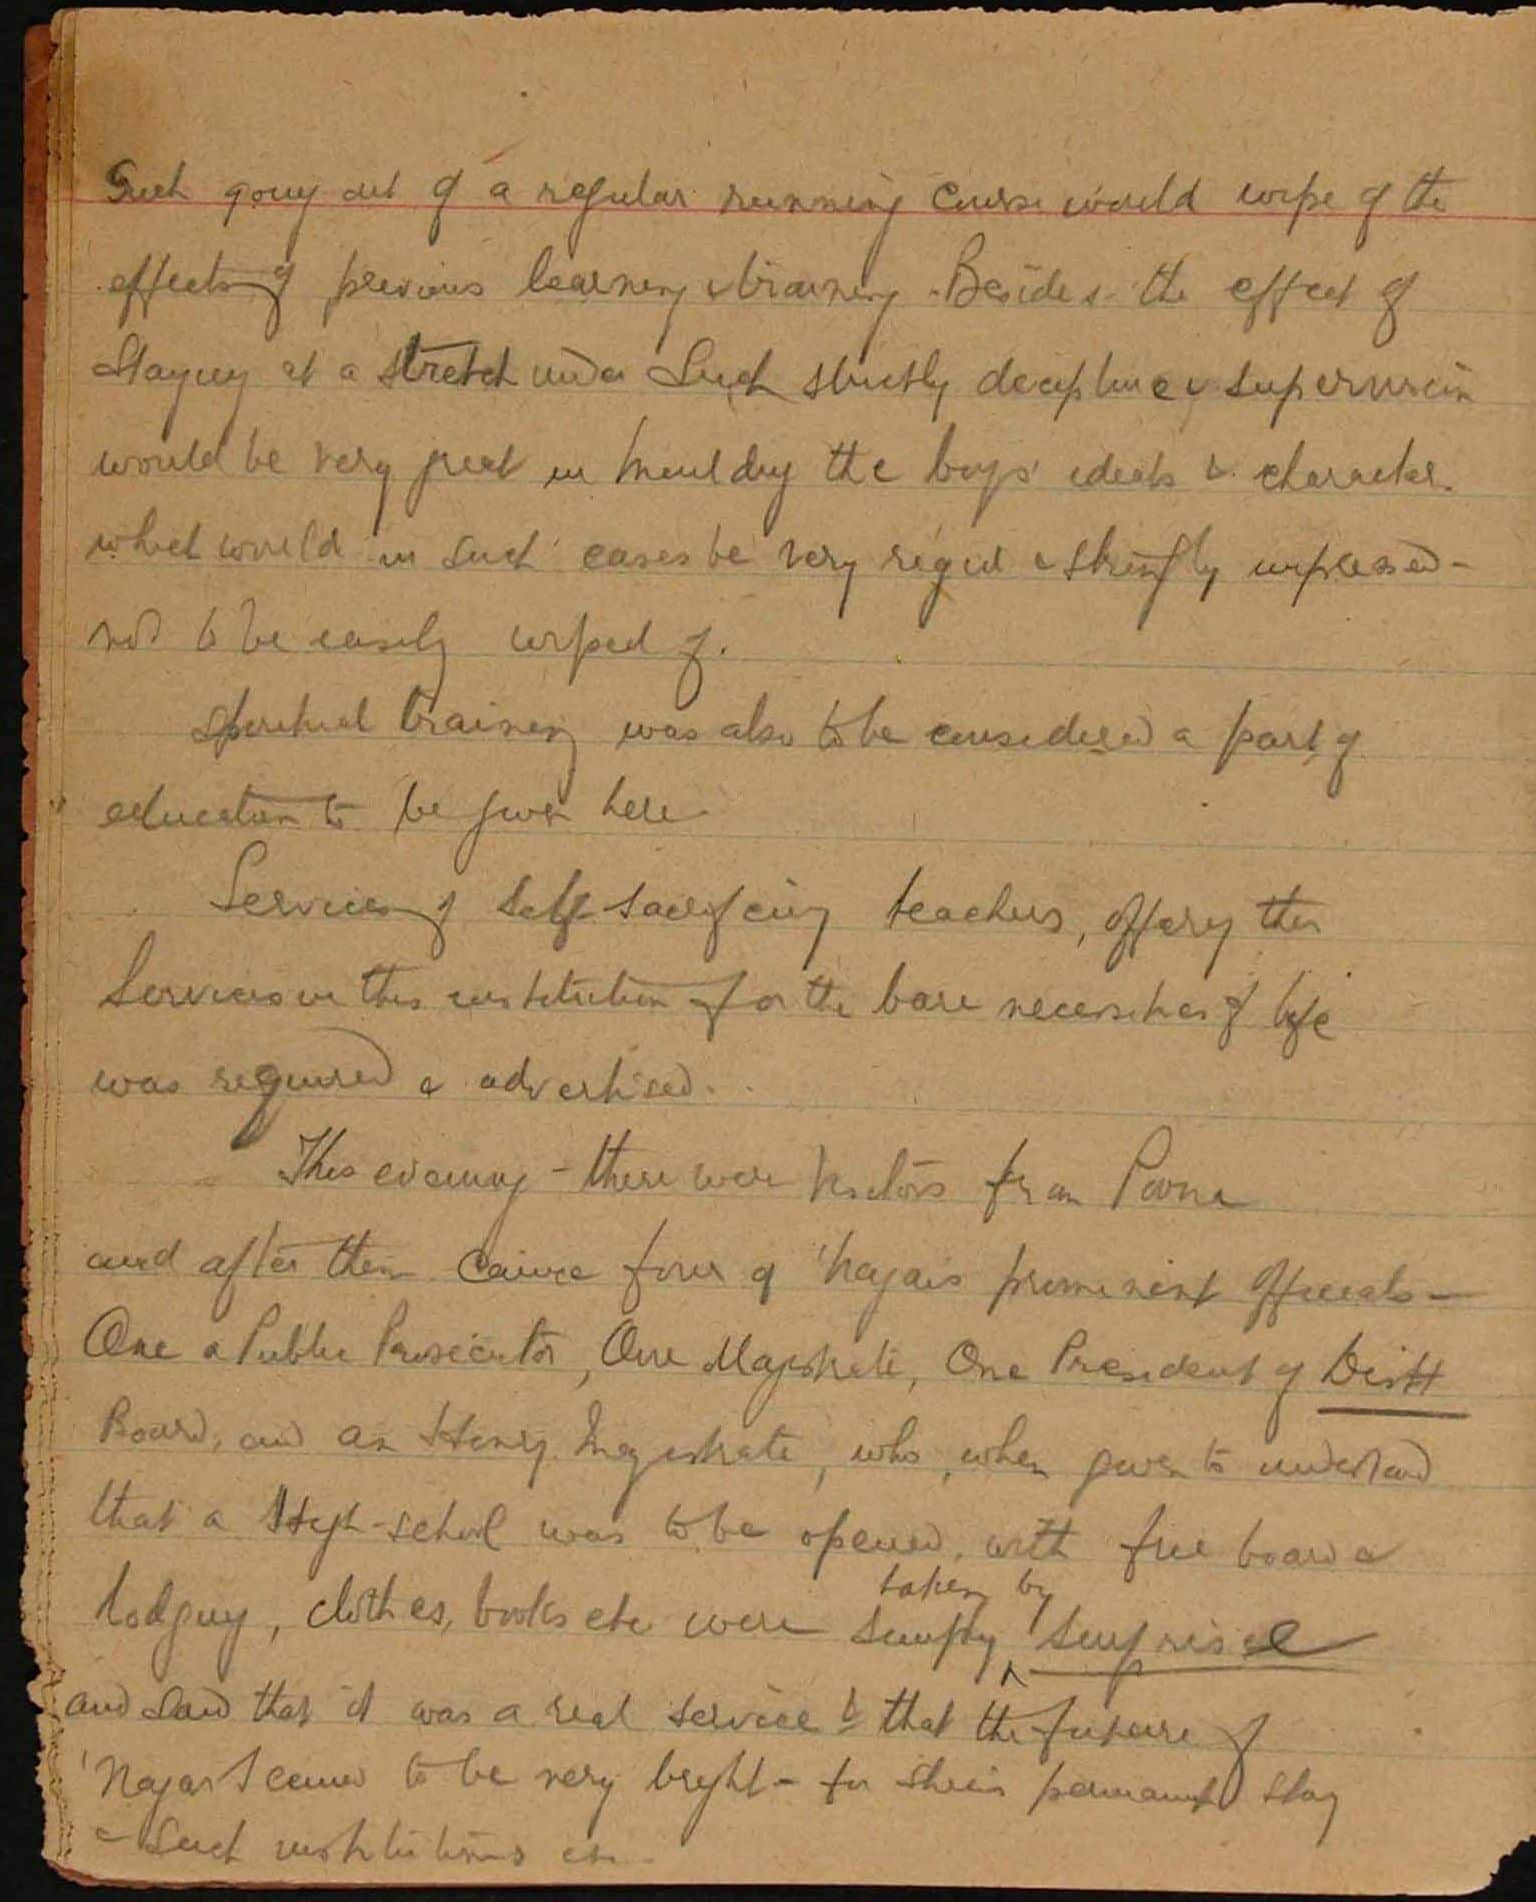 Such going out of a regular running course would wipe of the
effects of previous learning & training. Besides the effect of
staying at a stretch under such strictly decipline & supervision
would be very great in moulding the boys' ideals & character.
which would in such cases be very rigid & strongly impressed -
not to be easily wiped of.
Spiritual training was also to be considered a part of
education to be given here
Services of self sacrificing teachers, offering their
services in this institution for the bare necessities of life
was required & advertised.
This evening - there were visitors from Poona
and after them came four of 'Nagar's prominent officials -
One a Public Prosecutor, One Magistrate, One President of Distt
Board, and an Honry Magistrate, who, when given to understand
that a High-school was to be opened, with free board &
lodging, clothes, books etc were simply taken by surprise
and said that it was a real service & that the future of
'Nagar seemed to be very bright - for permanent stay
& such institutions etc.